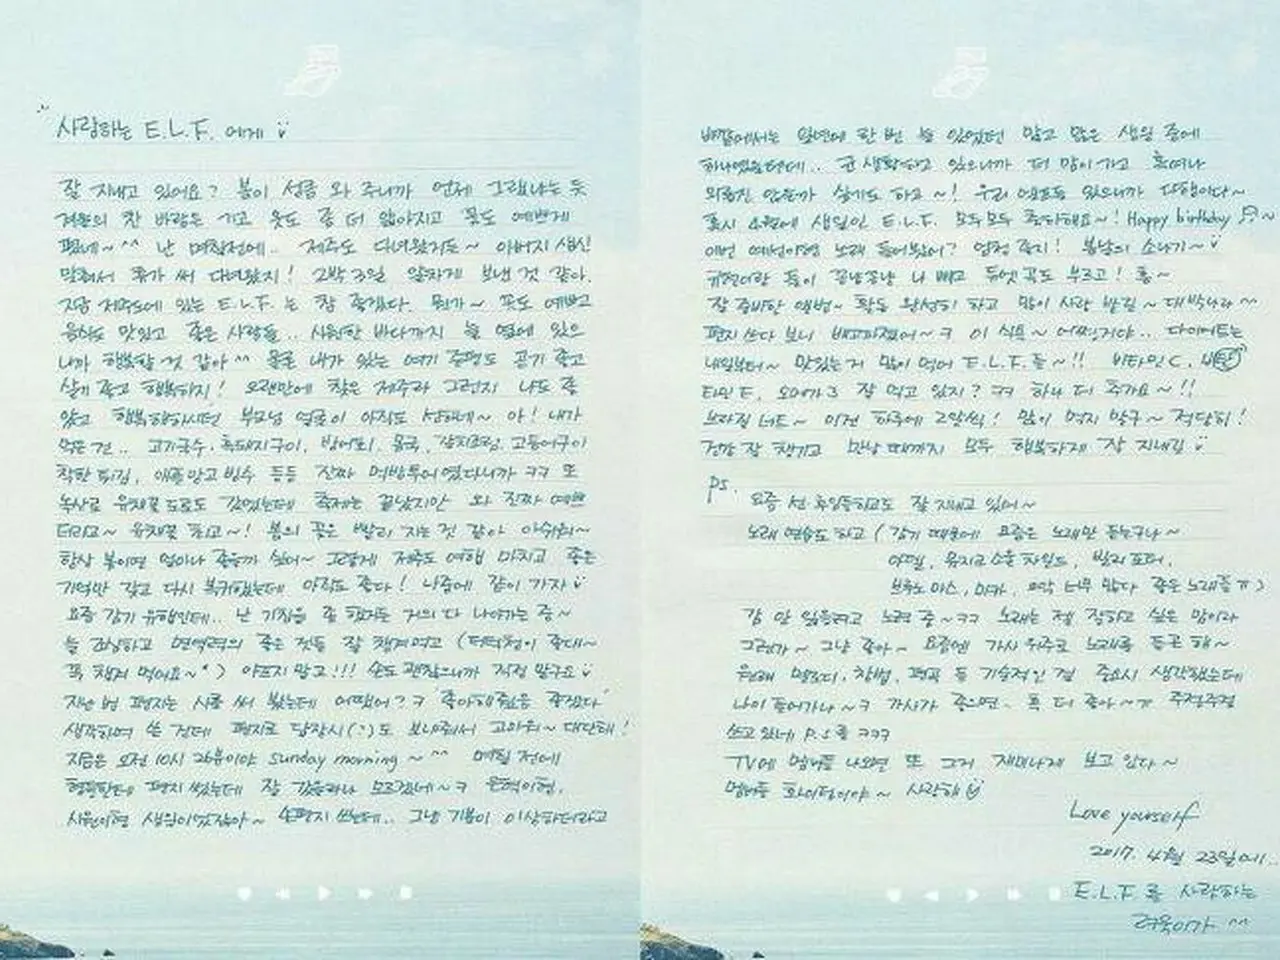 사랑하는 E.L.F. 에게
잘 지내고 있어요? 봄이 성큼 와 주니까 언제 그랬냐는 듯
겨울의 찬 바람은 가고 옷도 좀 더 얇아지고 꽃도 예쁘게
폈네~^^ 난 며칠전에.. 제주도 다녀왔지요~ 아버지 생신
맞춰서 휴가 써 다녀왔지! 2박 3일 알차게 보낸 것 같아.
지금 제주도에 있는 E.L.F.는 참 좋겠다. 뭔가~ 꽃도 예쁘고
음식도 맛있고 좋은 사람들.. 시원한 바다까지 늘 옆에 있으
니까 행복할 것 같아^^ 물론 내가 있는 여기 증평도 공기 좋고
살기 좋고 행복하지! 오랜만에 찾은 제주라 그런지 나도 좋
았고 행복해하시던 부모님 얼굴이 아직도 선하네~ 아! 내가
먹은 건.. 고기국수, 흑돼지구이, 방어회, 몸국, 갈치조림, 고등어구이
착한 튀김, 애플망고 빙수 등등 진짜 먹방투어였다니까 ㅋㅋ 또
녹산로 유채꽃 도로도 갔었는데 축제는 끝났지만 와 진짜 예쁘
더라고~ 유채꽃 최고~! 봄의 꽃은 빨리 지는 것 같아 아쉬워~
항상 봄이면 얼마나 좋을까 싶어~ 그렇게 제주도 여행 마치고 좋은
기억만 갖고 다시 복귀했는데 아직도 좋다! 나중에 같이 가자
요즘 감기 유행인데.. 난 기침을 좀 했거든 거의 다 나아가는 중~
늘 조심하고 면역력의 좋은 것들 잘 챙겨먹고 (
꼭 챙겨 먹어요~*) 아프지 말고!!! 손도 괜찮으니까 걱정 말구요
지난 번 편지는 시를 써 봤는데 어땠어? ㅋ 좋아해줬음 좋겠다
생각하며 쓴 건데 편지로 답장시(:)도 보내줘서 고마워~ 대단해!
지금은 오전 10시 26분이야 sunday morning ~ ^^ 며칠 전에
형들한테 편지 썼는데 잘 갔을라나 모르겠네~ㅋ 은혁이형,
시원이형 생일이었잖아~ 손편지 썼는데.. 그냥 기분이 이상하더라고
밖에서는 일년에 한 번 늘 있었던 많고 많은 생일 중에
하나였을텐데.. 군 생활하고 있으니까 더 맘이 가고 혹여나
외롭진 않을까 싶기도 하고~! 우리 엘프들 있으니까 다행이다~
혹시 4월에 생일인 E.L.F. 모두모두 축하해요~! Happy birthday ~
이번 예성이형 노래 들어봤어? 엄청 좋지! 봄날의 소나기~
규현이랑 둘이 꽁냥꽁냥 나 빼고 듀엣 곡도 부르고! 흥~
잘 준비한 앨범~ 활동 왕성히 하고 많이 사랑 받길~ 대박나라^^
편지 쓰다 보니 배고파졌어~ㅋ 이 식욕~ 어쩔거야.. 다이어트는
내일부터~ 맛있는 거 많이 먹어 E.L.F.들~!! 비타민C, 비
타민E, 오메가3 잘 먹고 있지? ㅋㅋ 하나 더 추가요~!!
브라질너트~ 이건 하루에 2알씩! 많이 먹지 말구~ 적당히!
건강 잘 챙기고 만날 때까지 모두 행복하게 잘 지내길
ps.
요즘 선후임동하고도 잘 지내고 있어~
노래 연습도 하고 (감기 때문에 요즘은 노래만 듣는구나~
아델, 뮤지크소울차일드, 빌리 포터,
브루노 마스, 미카, 으악 너무 많다 좋은 노래들ㅠ)
감 안 잃을려고 노력 중~ㅋㅋ 노래는 젤 잘하고 싶은 맘이라
그런가~ 그냥 좋아~ 요즘엔 가사 위주로 노래를 듣곤 해~
원래 멜로디, 창법, 편곡 등 기술적인 걸 중요시 생각했는데
나이 들어가나~ㅋ 가사가 좋으면, 훅 더 좋아~ㅋ 주절주절
쓰고 있네 P.S를 ㅋㅋㅋ
TV에 멤버들 나오면 또 그거 재미나게 보고 있다~
멤버들 화이팅이야~ 사랑해
Love yourself
2017. 4월 23일에..
E.L.F를 사랑하는
려욱이가 ^^